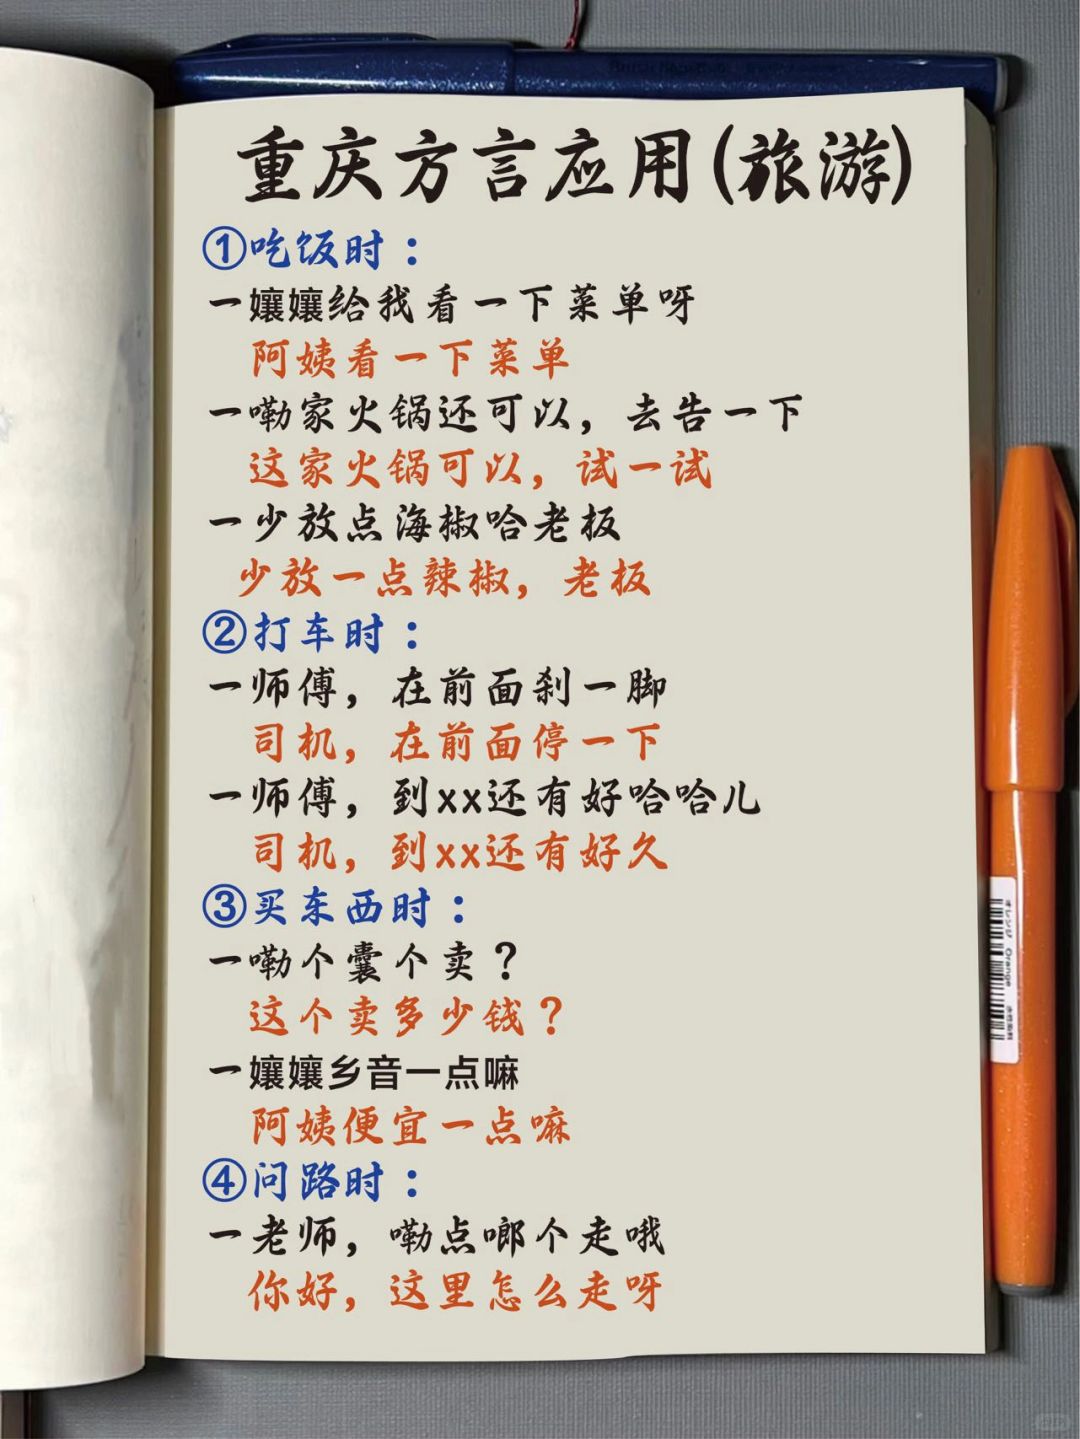 重庆方言应用(旅游)
①吃饭时：
一孃孃给我看一下菜单呀
阿姨看一下菜单
一嘞家火锅还可以，去告一下
这家火锅可以，试一试
一少放点海椒哈老板
少放一点辣椒，老板
②打车时：
一师傅，在前面刹一脚
司机，在前面停一下
一师傅，到xx还有好哈哈儿
司机，到xx还有好久
③买东西时：
一嘞个囊个卖？
这个卖多少钱？
一孃孃乡音一点嘛
阿姨便宜一点嘛
④问路时：
一老师，嘞点啷个走哦
你好，这里怎么走呀
オレンジ Orange